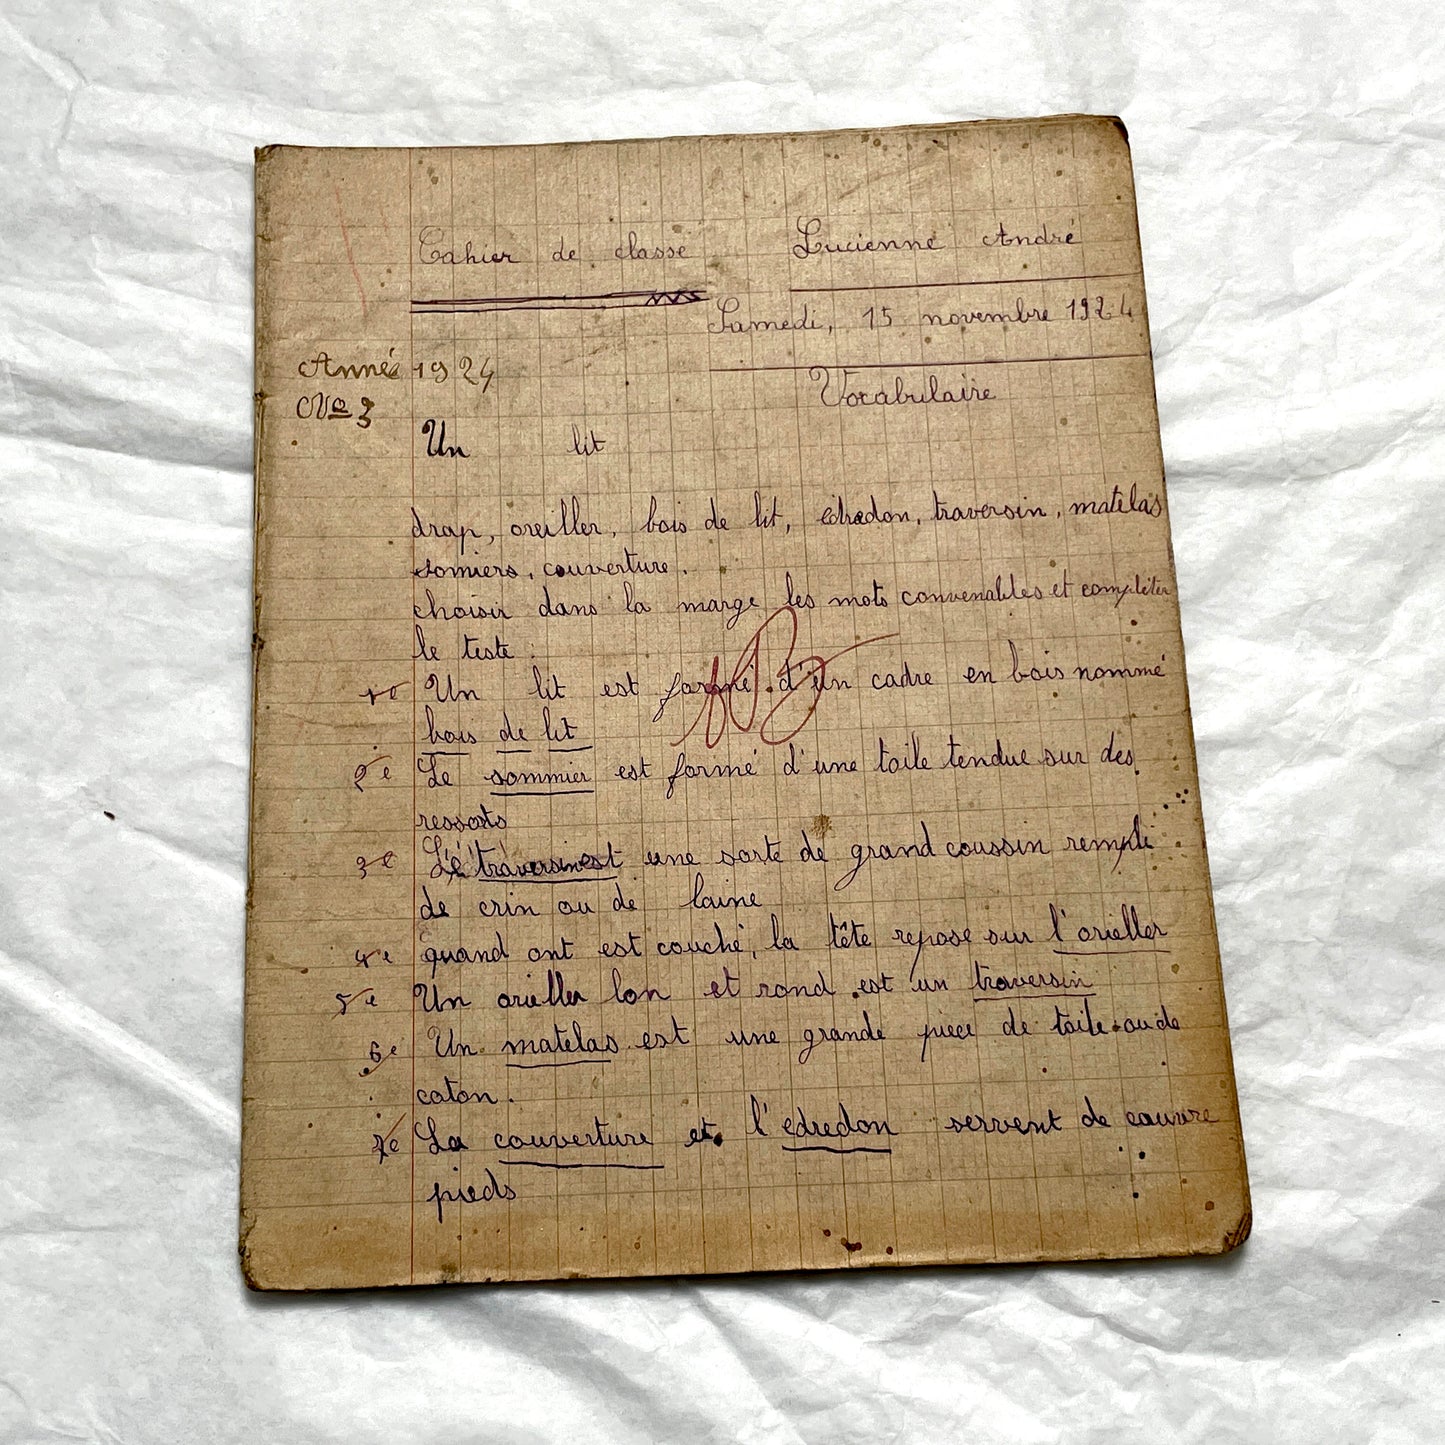 Cahier de classe Lucienne André
Samedi, 15 novembre 1924
Année 1924
Vocabulaire
No 3
Un lit
drap, oreiller, bois de lit, edredon, traversin, matelas
somiers, couverture.
choisir dans la marge les mots convenables et compléter
le teste :
1e Un lit est formé d'un cadre en bois nommé
bois de lit
2e Le sommier est formé d'une toile tendue sur des
ressorts
3e Le traversin est une sorte de grand coussin rempli
de crin ou de laine
4e quand ont est couché, la tête repose sur l'orieller
5e Un orieller lon et rond est un traversin
6e Un matelas est une grande piece de toile ou de
coton.
7e La couverture et l'edredon servent de couvre
pieds